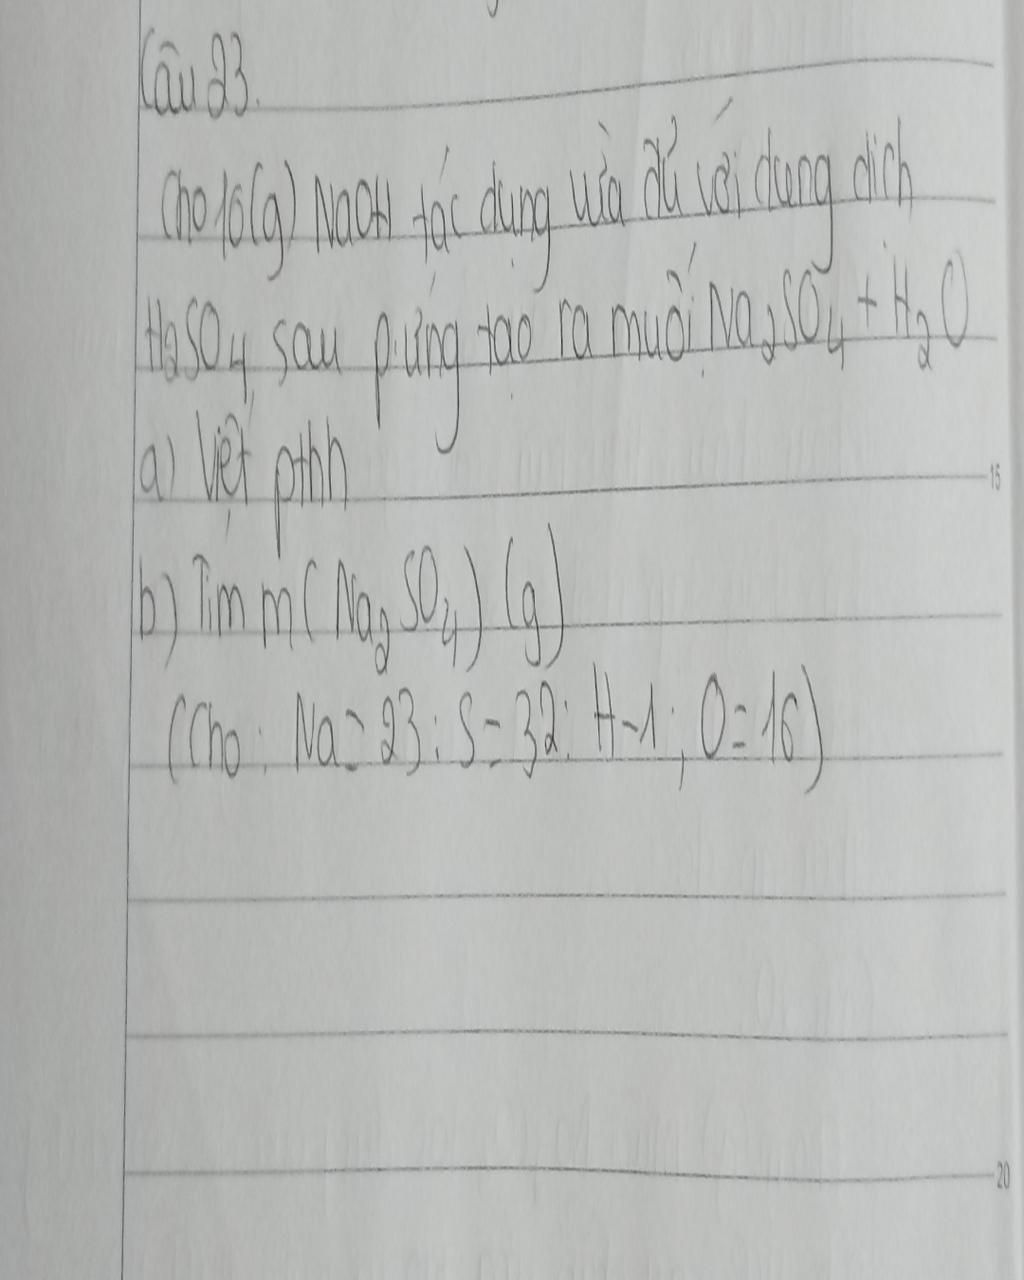 Câu 23.
Cho 16(g) NaOH tác dụng vừa đủ với dung dịch
H2SO4, sau p.ứng tạo ra muối Na2SO4 + H2O
a) Viết pthh
15
b) Tìm m( Na2SO4) (g)
(Cho: Na = 23; S = 32; H-1; O = 16)
20